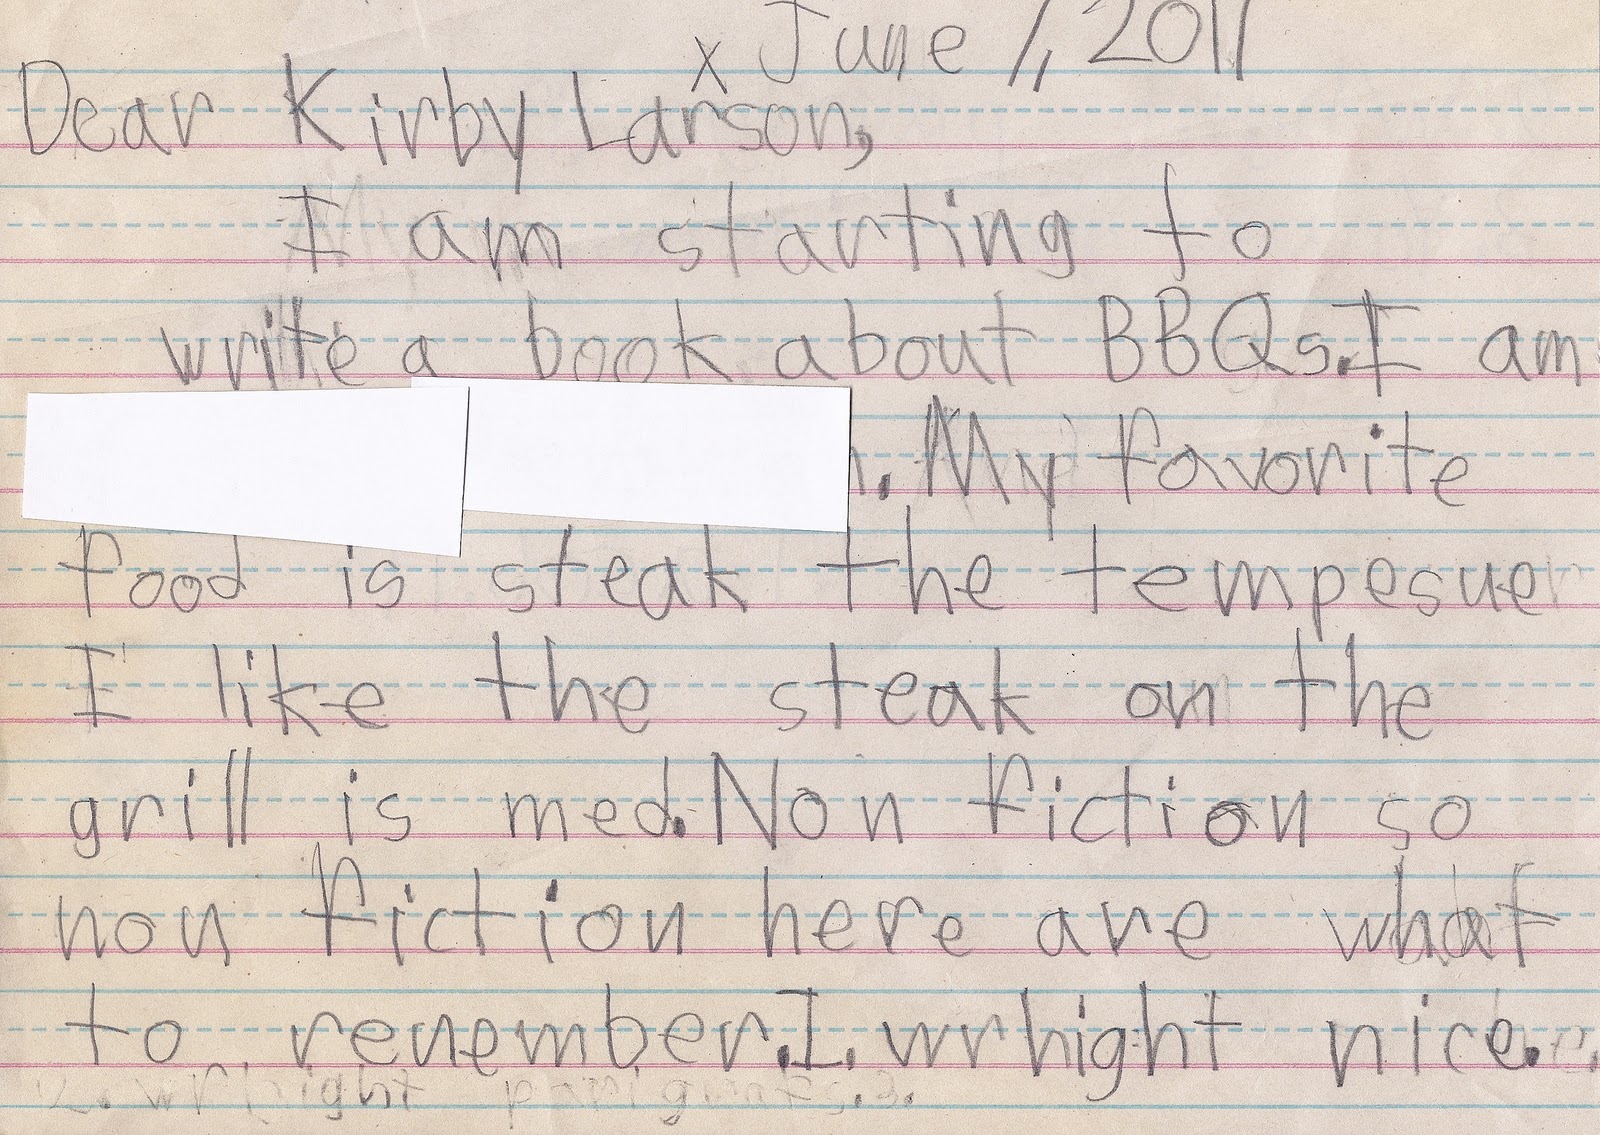 x June 1, 2011
Dear Kirby Larson,
I am starting to
write a book about BBQs.I am
. My favorite
food is steak the tempesuer
I like the steak on the
grill is med.Non fiction so
non fiction here are what
to renember.I. wrhight nice.
2. wrihight 3.